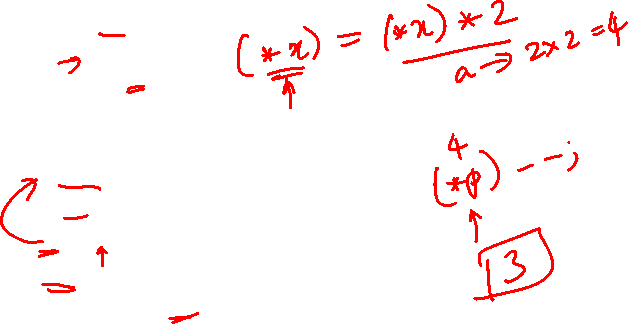 (*x) = (*x) * 2
a → 2×2 = 4
4
(*p) --;
3